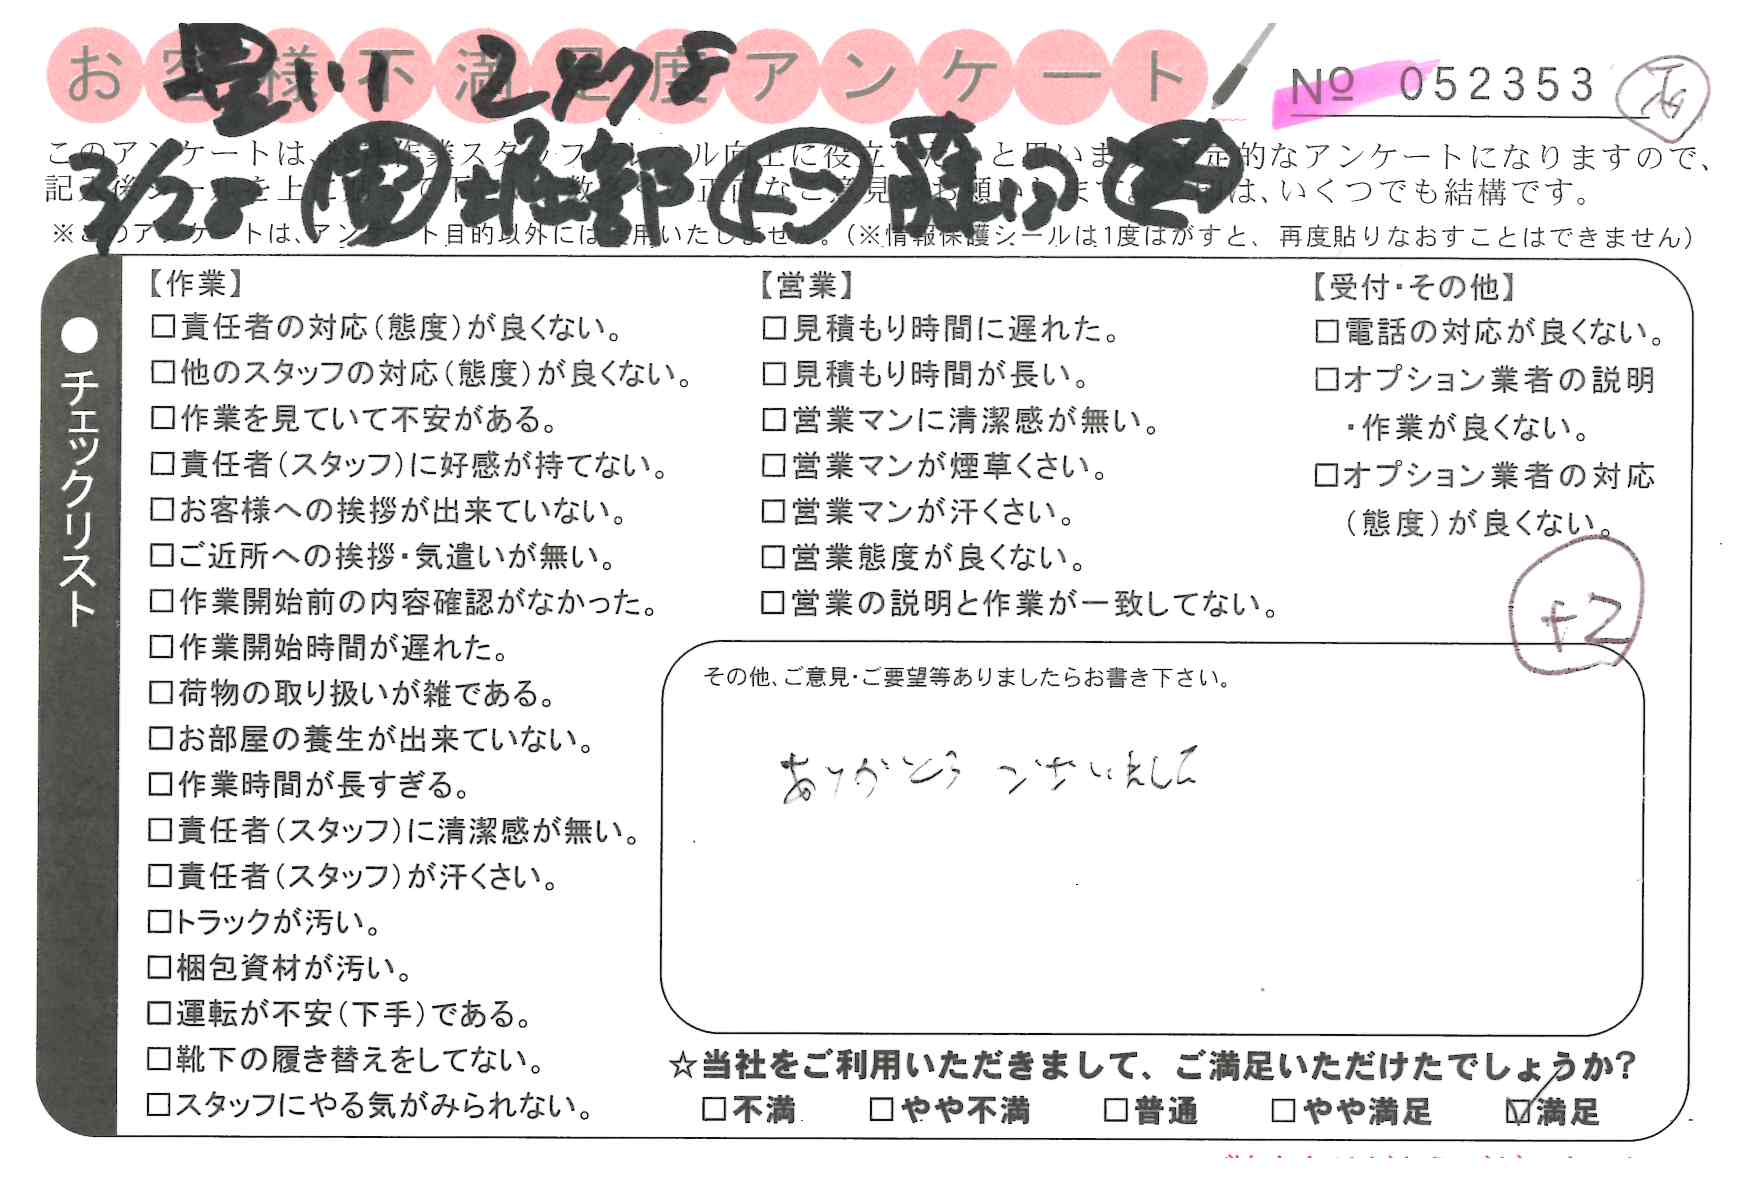 お客様不満足度アンケート
No 052353
3/28 堀部
このアンケートは、作業スタッフのレベル向上に役立と思います定的なアンケートになりますので、
いくつでも結構です。
※このアンケートは、アンケート目的以外には使用いたしません。（※情報保護シールは1度はがすと、再度貼りなおすことはできません）
●チェックリスト
【作業】
□責任者の対応（態度）が良くない。
□他のスタッフの対応（態度）が良くない。
□作業を見ていて不安がある。
□責任者（スタッフ）に好感が持てない。
□お客様への挨拶が出来ていない。
□ご近所への挨拶・気遣いが無い。
□作業開始前の内容確認がなかった。
□作業開始時間が遅れた。
□荷物の取り扱いが雑である。
□お部屋の養生が出来ていない。
□作業時間が長すぎる。
□責任者（スタッフ）に清潔感が無い。
□責任者（スタッフ）が汗くさい。
□トラックが汚い。
□梱包資材が汚い。
□運転が不安（下手）である。
□靴下の履き替えをしてない。
□スタッフにやる気がみられない。
【営業】
□見積もり時間に遅れた。
□見積もり時間が長い。
□営業マンに清潔感が無い。
□営業マンが煙草くさい。
□営業マンが汗くさい。
□営業態度が良くない。
□営業の説明と作業が一致してない。
【受付・その他】
□電話の対応が良くない。
□オプション業者の説明
・作業が良くない。
□オプション業者の対応
（態度）が良くない。
+2
その他、ご意見・ご要望等ありましたらお書き下さい。
ありがとうございました
☆当社をご利用いただきまして、ご満足いただけたでしょうか？
□不満 □やや不満 □普通 □やや満足 ☑満足